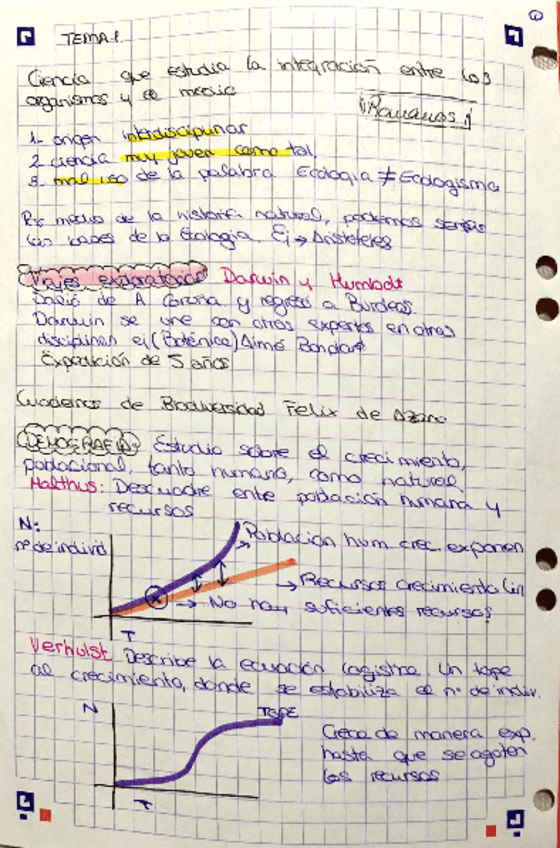 ①
TEMA 1.
Ciencia que estudia la integración entre los
organismos y el medio
¡¡Romanos!!
1- origen interdisciplinar
2 ciencia muy joven como tal.
3. mal uso de la palabra Ecología ≠ Ecologismo
Por medio de la historia natural, podemos
las bases de la Ecología. Ej → Aristóteles
Viajes exploratorios Darwin y Humboldt
de A Coruña y regresó a Burdeos.
Darwin se une con otros expertos en otras
disciplinas ej (Botánica) Aimé
Expedición de 5 años
Cuadernos de Biodiversidad Felix de Azara
DEMOGRAFÍA: Estudio sobre el crecimiento,
poblacional, tanto humano, como natural.
Malthus: Descuadre entre población humana y
recursos
N:
nº de individ
Población hum. crec. exponen
→ Recursos crecimiento lin
→ No hay suficientes recursos
T
Verhulst Describe la ecuación logística. Un tope
al crecimiento, donde se estabiliza el nº de indiv.
N
TOPE
Crece de manera exp.
hasta que se agoten
los recursos
T